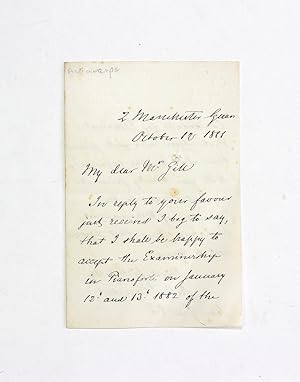 2 Manchester Square
October 12 1881
My dear Mr Gill
In reply to your favour
just received I beg to say,
that I shall be happy to
accept the Examinership
in Pianoforte on January
12th and 13th 1882 of the